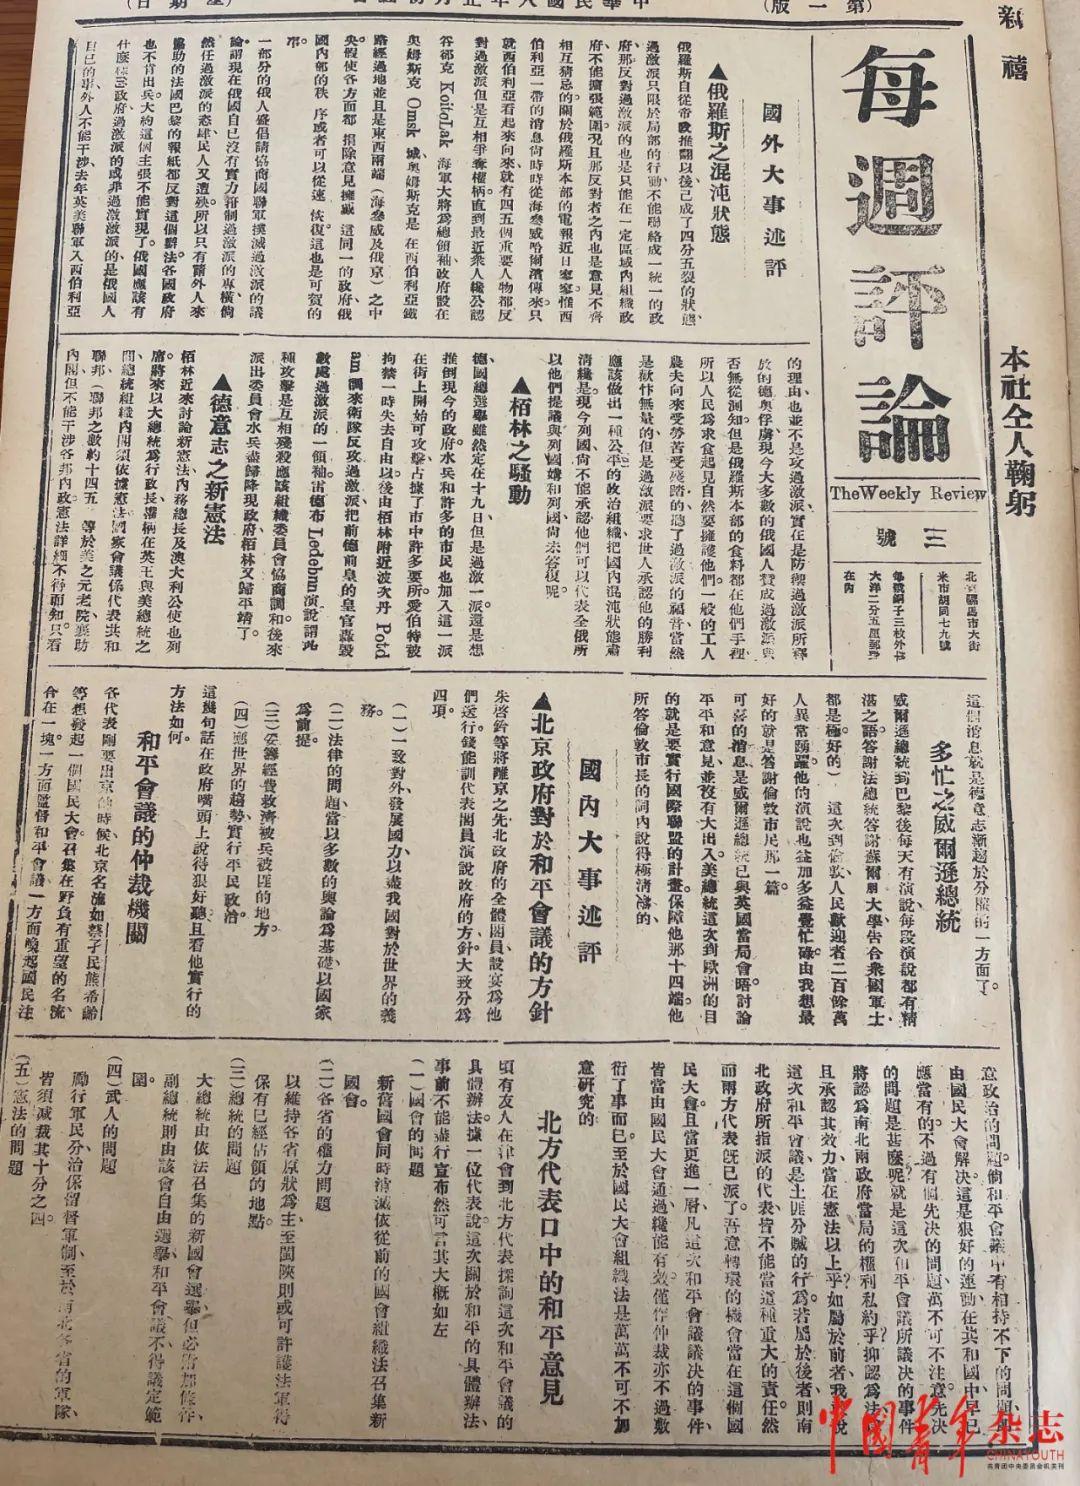 新禧
本社仝人鞠躬
(第一版)
每週評論
The Weekly Review
三號
北京騾馬市大街
米市胡同七九號
每號銅子三枚外埠
大洋二分五厘郵費
在內
國外大事述評
▲俄羅斯之混沌狀態
俄羅斯自從帝政推翻以後已成了四分五裂的狀態、
過激派只限於局部的行動不能聯絡成一統一的政
府那反對過激派的也是只能在一定區域內組織政
府不能擴張範圍况且那反對者之內也是意見不齊
相互猜忌的關於俄羅斯本部的電報近日寥寥惟西
伯利亞一帶的消息尚時時從海參威哈爾濱傳來只
就西伯利亞看起來向來就有四五個重要人物都反
對過激派但是互相爭奪權柄直到最近衆人纔公認
谷都克 KoltoLak 海軍大將爲總領袖政府設在
奧姆斯克 Omsk 城奧姆斯克是 在西伯利亞鐵
路經過地並且是東西兩端(海參威及俄京)之中
央假使各方面都 捐除意見擁戴 這同一的政府、俄
國內部的秩 序或者可以從速 恢復這也是可賀的
事。
一部分的俄人盛倡請協商國聯軍撲滅過激派的議
論謂現在俄國自已沒有實力箝制過激派的專橫倘
然任過激派的恣肆、民人又遭殃所以只有藉外人來
協助的法國巴黎的報紙都反對這個辦法各國政府
也不肯出兵大約這個主張不能實現了。俄國應該有
什麽樣的政府過激派的或非過激激派的、是俄國人
自已的事、外人不能干涉、去年英美聯軍入西伯利亞
的理由、也並不是攻過激派、實在是防禦過激派所釋
於的德奧俘虜現今大多數的俄國人贊成過激派與
否無從測知。但是俄羅斯本部的食料都在他們手裡
所以人民爲求食起見自然要擁護他們。一般的工人
農夫向來受勞苦受殘踏的、聽了過激派的福音當然
是歡忭無量的、但是過激派要求世人承認他的勝利
應該做出一種公平的政治組織把國內混沌狀態肅
清纔是。現今列國尚不能承認他們可以代表全俄所
以他們提議與列國媾和列國尚未答復呢。
▲栢林之騷動
德國總選舉雖然定在十九日但是過激一派還是想
推倒現今的政府。水兵和許多的市民也加入這一派
在街上開始可攻擊、占據了市中許多要所。愛伯特被
拘禁一時失去自由以後由栢林附近波次丹 Potd
am 調來衛隊反攻過激派、把前德前皇的皇宮轟毀
數處過激派的一領袖雷德布 Ledebnu 演說謂此
種攻擊是互相殘殺應該組織委員會協商調和後來
派出委員會水兵盡歸降現政府栢林又歸平靖了。
▲德意志之新憲法
栢林近來討論新憲法內務總長及澳大利公使也列
席將來以大總統爲行政長權柄在英王與美總統之
間總統組織內閣須依據憲法國家會議係代表共和
聯邦(聯邦之數約十四五)等於美之元老院襄助
內閣但不能干涉各邦內政。憲法詳細不得而知。只看
這個消息就是德意志漸趨於分權的一方面了。
多忙之威爾遜總統
威爾遜總統到巴黎後每天有演說每段演說都有精
湛之語答謝法總統答謝蘇爾朋大學告合衆國軍士
都是極好的)　這次到倫敦人民歡迎者二百餘萬
人異常踴躍、他的演說也益加多益覺忙碌。由我想最
好的就是答謝倫敦市民那一篇。
可喜的消息是威爾遜總統已與英國當局會晤討論
平和意見、並沒有大出入。美總統這次到歐洲的目
的就是要實行國際聯盟的計畫、保障他那十四端。他
所答倫敦市長的詞內說得極淸凈的
國內大事述評
▲北京政府對於和平會議的方針
朱啓鈐等將離京之先北政府的全體閣員設宴爲他
們送行。錢能訓代表閣員演說政府的方針。大致分爲
四項。
(一)一致對外發展國力以盡我國對於世界的義
務。
(二)法律的問題當以多數的輿論爲基礎以國家
爲前提。
(三)妥籌經費救濟被兵被匪的地方。
(四)察世界的趨勢實行平民政治。
這幾句話在政府嘴頭上說得狠好聽且看他實行的
方法如何。
和平會議的仲裁機關
各代表剛要出京的時候、北京名流如蔡孑民熊希齡
等想發起一個國民大會。召集在野負有重望的名流、
合在一塊一方面監督和平會議一方面喚起國民注
意政治的問題倘和平會議中有相持不下的問題便
由國民大會解决這是狠好的運動在共和國中早已
應當有的。不過有個先决的問題、萬不可不注意。先决
的問題是甚麽呢就是這次和平會議所議决的事件
將認爲南北兩政府當局的權利私約乎?抑認爲法律
且承認其效力、當在憲法以上乎?如屬於前者、我敢說
這次和平會議是土匪分贓的行爲。若屬於後者則南
北政府所指派的代表、皆不能當這種重大的責任。然
而兩方代表旣已派了。吾意轉環的機會當在這個國
民大會、且當更進一層、凡這次和平會議議决的事件、
皆當由國民大會通過纔能有效。僅作仲裁亦不過敷
衍了事而已。至於國民大會組織法是萬萬不可不加
意研究的
北方代表口中的和平意見
頃有友人在津會到北方代表探詢這次和平會議的
具體辦法。據一位代表說。這次關於和平的具體辦法、
事前不能盡行宣布然可言其大概如左
(一)國會的問題
新舊國會同時消滅依從前的國會組織法召集新
國會。
(二)各省的權力問題
以維持各省原狀爲主、至閩陝則或可許護法軍得
保有已經佔領的地點。
(三)總統的問題
大總統由依法召集的新國會選舉但必附加條件、
副總統則由該會自由選舉和平會議不得議定範
圍。
(四)武人的問題
勵行軍民分治保留督軍制、至於南北各省的軍隊、
皆須減裁其十分之四。
(五)憲法的問題
中國青年杂志
CHINA YOUTH
共青团中央委员会机关刊